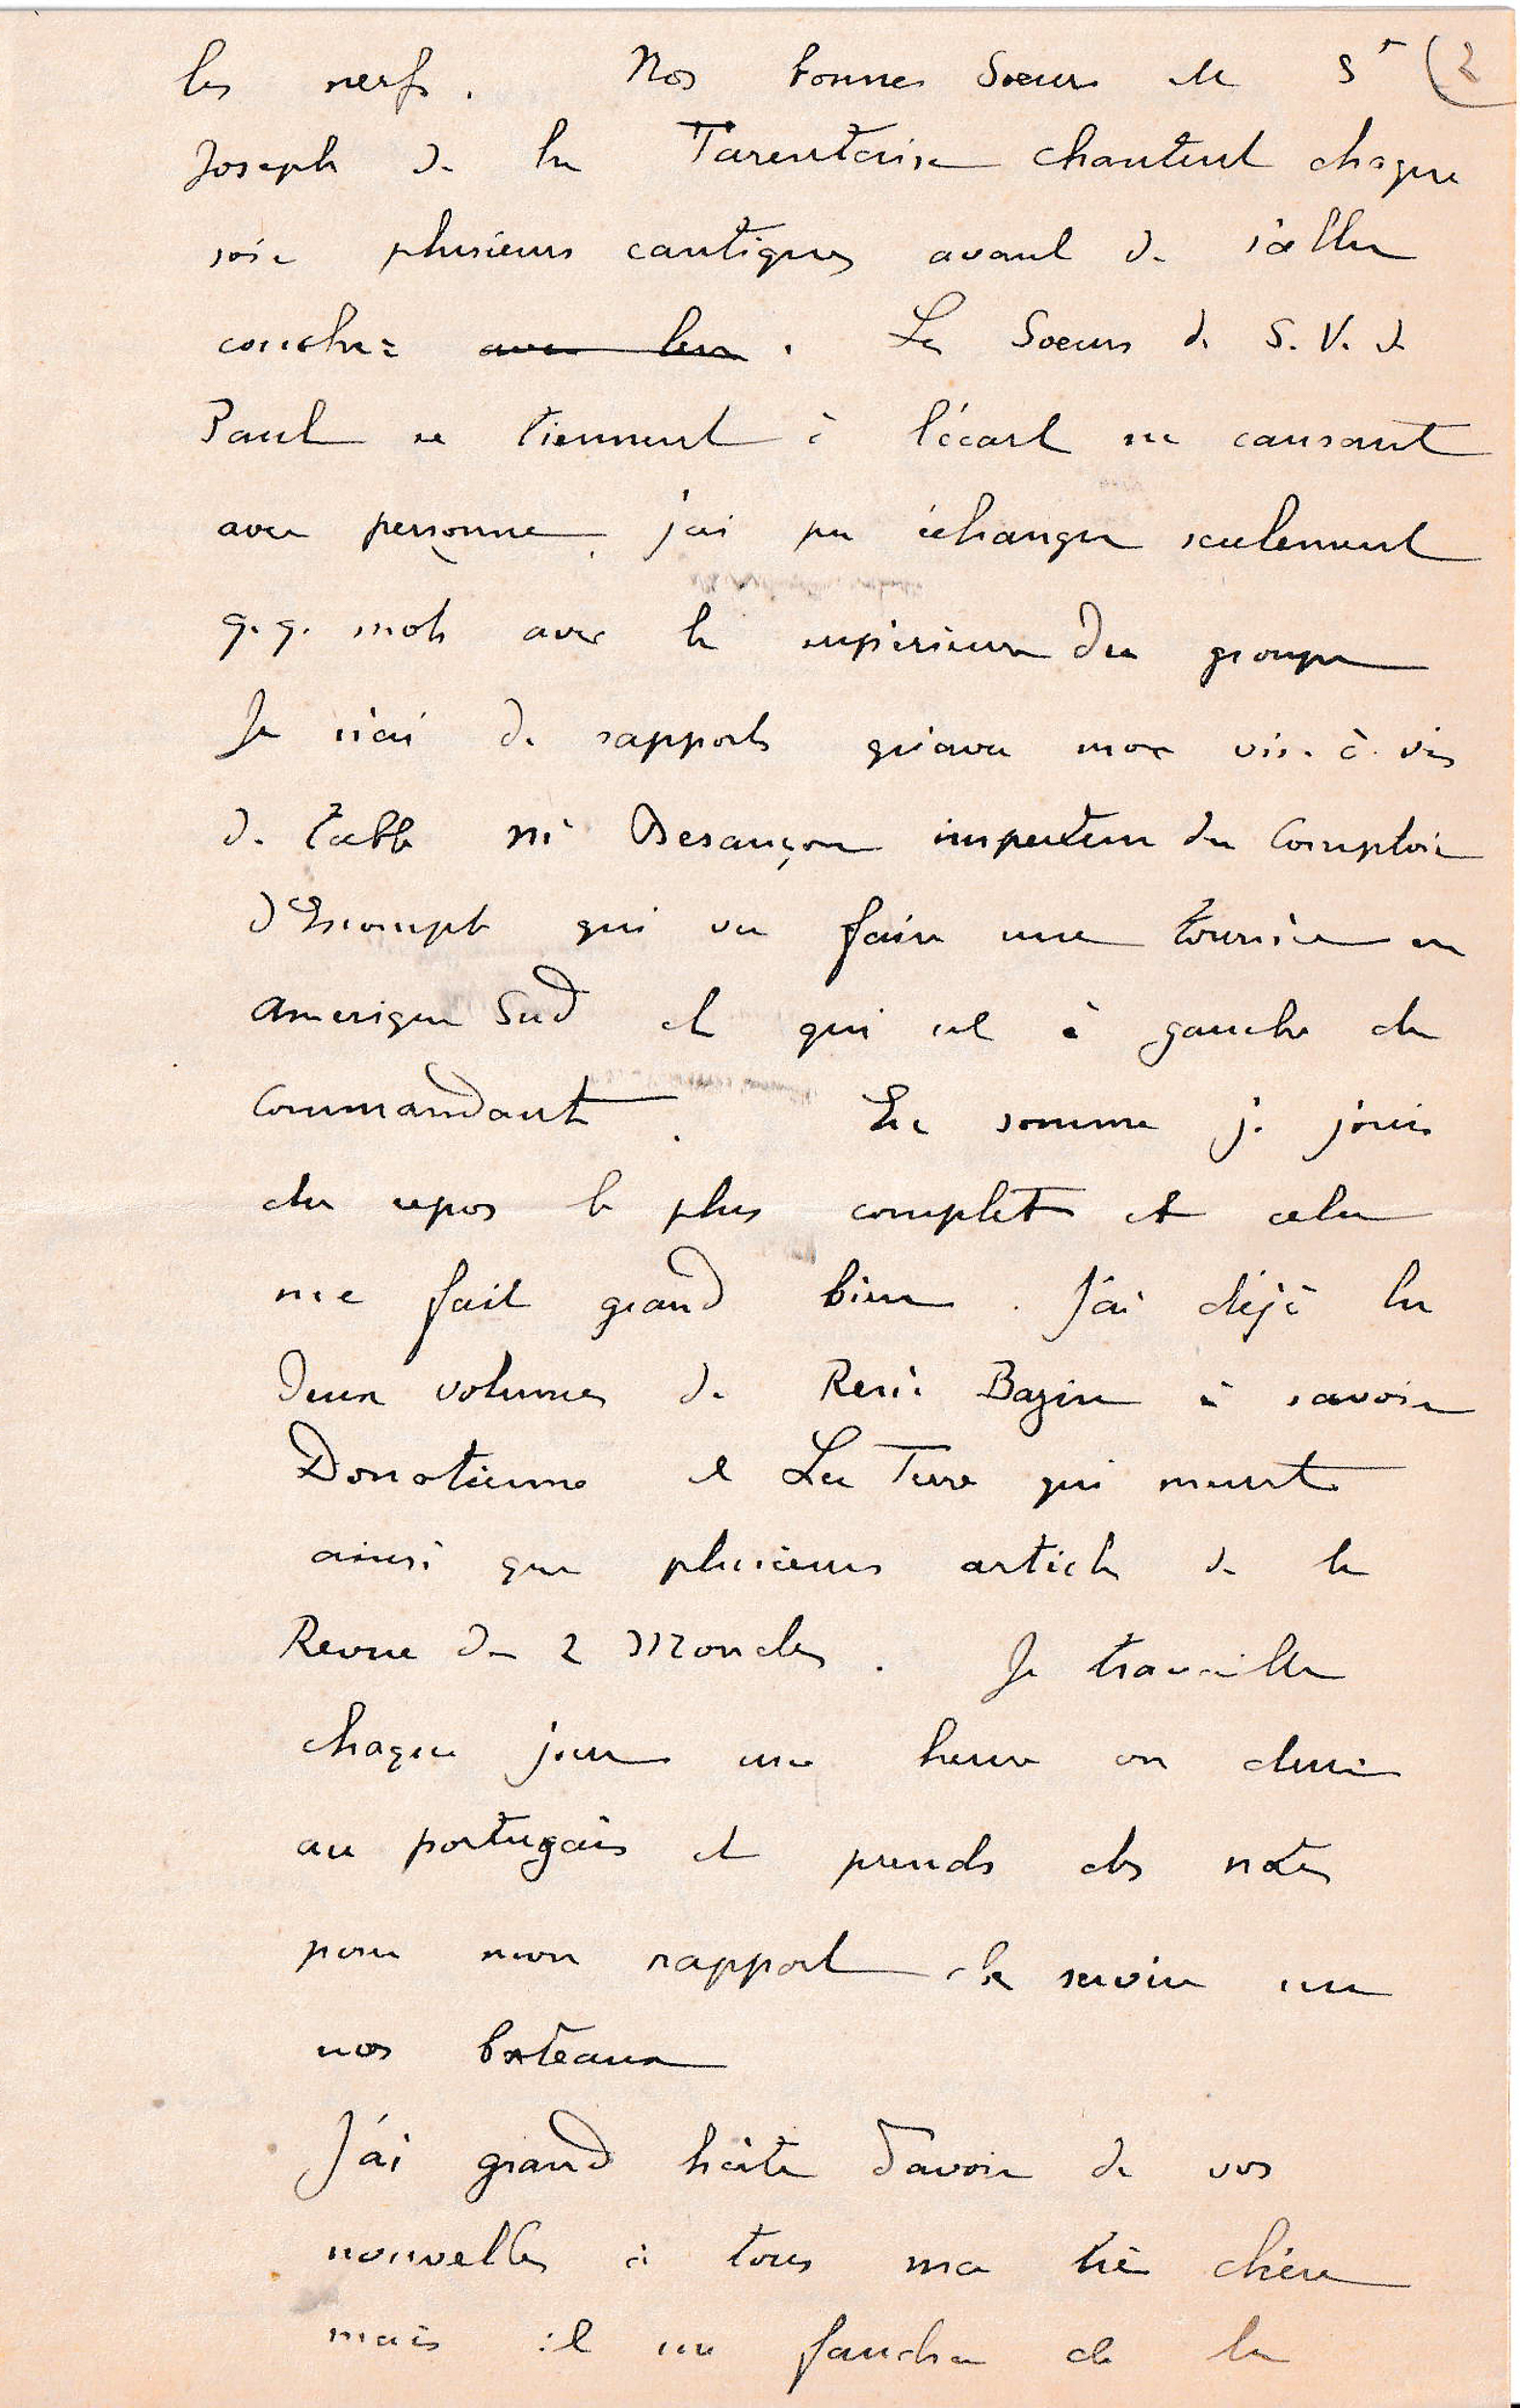 les nerfs. Nos bonnes Soeurs de St (2
Joseph de la Tarentaise chantent chaque
soir plusieurs cantiques avant de s'aller
coucher avec leur. Les Soeurs de S. V. de
Paul se tiennent à l'écart ne causant
avec personne, j'ai pu échanger seulement
q.q. mots avec la supérieure du groupe
Je n'ai de rapports qu'avec mon vis-à-vis
de table Besançon inspecteur du Comptoir
d'Escompte qui va faire une tournée en
Amerique Sud et qui est à gauche du
Commandant. En somme je jouis
du repos le plus complet et cela
me fait grand bien. J'ai déjà lu
deux volumes de René Bazin à savoir
Donatienne et La Terre qui meurt
ainsi que plusieurs articles de la
Revue des 2 Mondes. Je travaille
chaque jour une heure ou demie
au portugais et prends des notes
pour mon rapport de service sur
nos bateaux
J'ai grand hâte d'avoir de vos
nouvelles à tous ma très chère
mais il me faudra de la